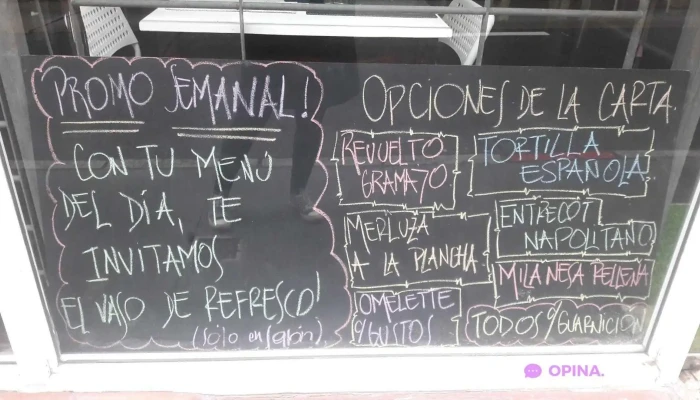 PROMO SEMANAL!
CON TU MENÚ
DEL DÍA, TE
INVITAMOS
EL VASO DE REFRESCO!
(sólo en salón)
OPCIONES DE LA CARTA.
REVUELTO
GRAMAJO
MERLUZA
A LA PLANCHA
OMELETTE
C/GUSTOS
TORTILLA
ESPAÑOLA
ENTRECOT
NAPOLITANO
MILANESA RELLENA
TODOS C/GUARNICIÓN
OPINA.